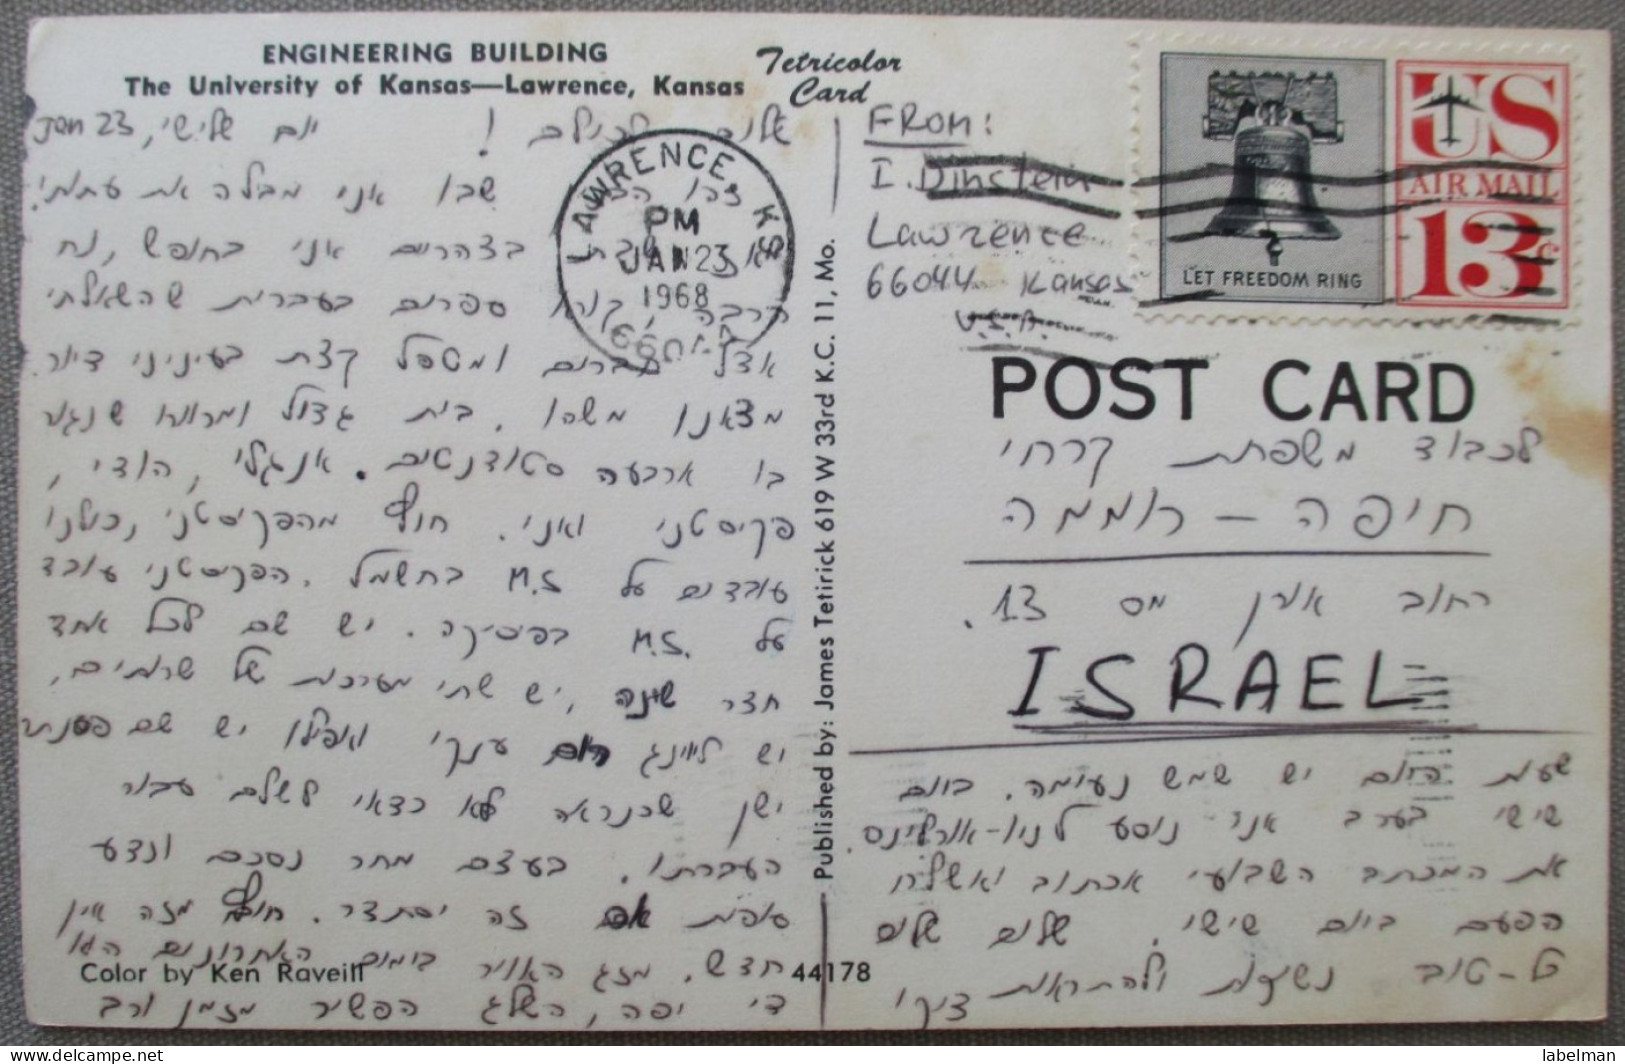 ENGINEERING BUILDING
The University of Kansas—Lawrence, Kansas
Tetricolor
Card
Jan 23, יום שלישי
שלום לכולם !
שבו אני מבלה את עתתי.
שבת בצהרים אני בחופש, נח
הרבה, קורא ספרים בעברית שהשאלתי
אצל חברים ומטפל קצת בעיניני דיור
מצאנו משהו. בית גדול ומרווח שנגור
בו ארבעה סטודנטים. אנגלי, הודי,
פקיסטני ואני. חוץ מהפקיסטני, כולנו
עובדים על M.S בחשמל. הפקיסטני עובד
על M.S. בפיסיקה. יש שם לכל אחד
חדר שינה, יש שתי מערכות של שרותים,
יש ליוינג רום ענקי ואפילו יש שם פסנתר
ישן שכנראה לא כדאי לשלם עבור
העברתו. בעצם מחר נסכם ונדע
סופית אם זה יסתדר. חוץ מזה אין
חדש. מזג האויר בימים האחרונים היה
די יפה, השלג הפשיר מזמן ורב
LAWRENCE, KS
PM
JAN 23
1968
Published by: James Tetirick 619 W 33rd K.C. 11, Mo.
Color by Ken Raveill
44178
FROM:
I. Dinstein
Lawrence
66044 Kansas
U.S.A.
US
AIR MAIL
13c
LET FREEDOM RING
POST CARD
לכבוד משפחת קרחי
חיפה – רוממה
רחוב אורן מס 13.
ISRAEL
שעות היום יש שמש נעימה. ביום
שישי בערב אני נוסע לניו-אורלינס.
את המכתב השבועי אכתוב ואשלח
הפעם ביום שישי. שלום שלום
כל-טוב נשיקות ולהתראות
ציקו